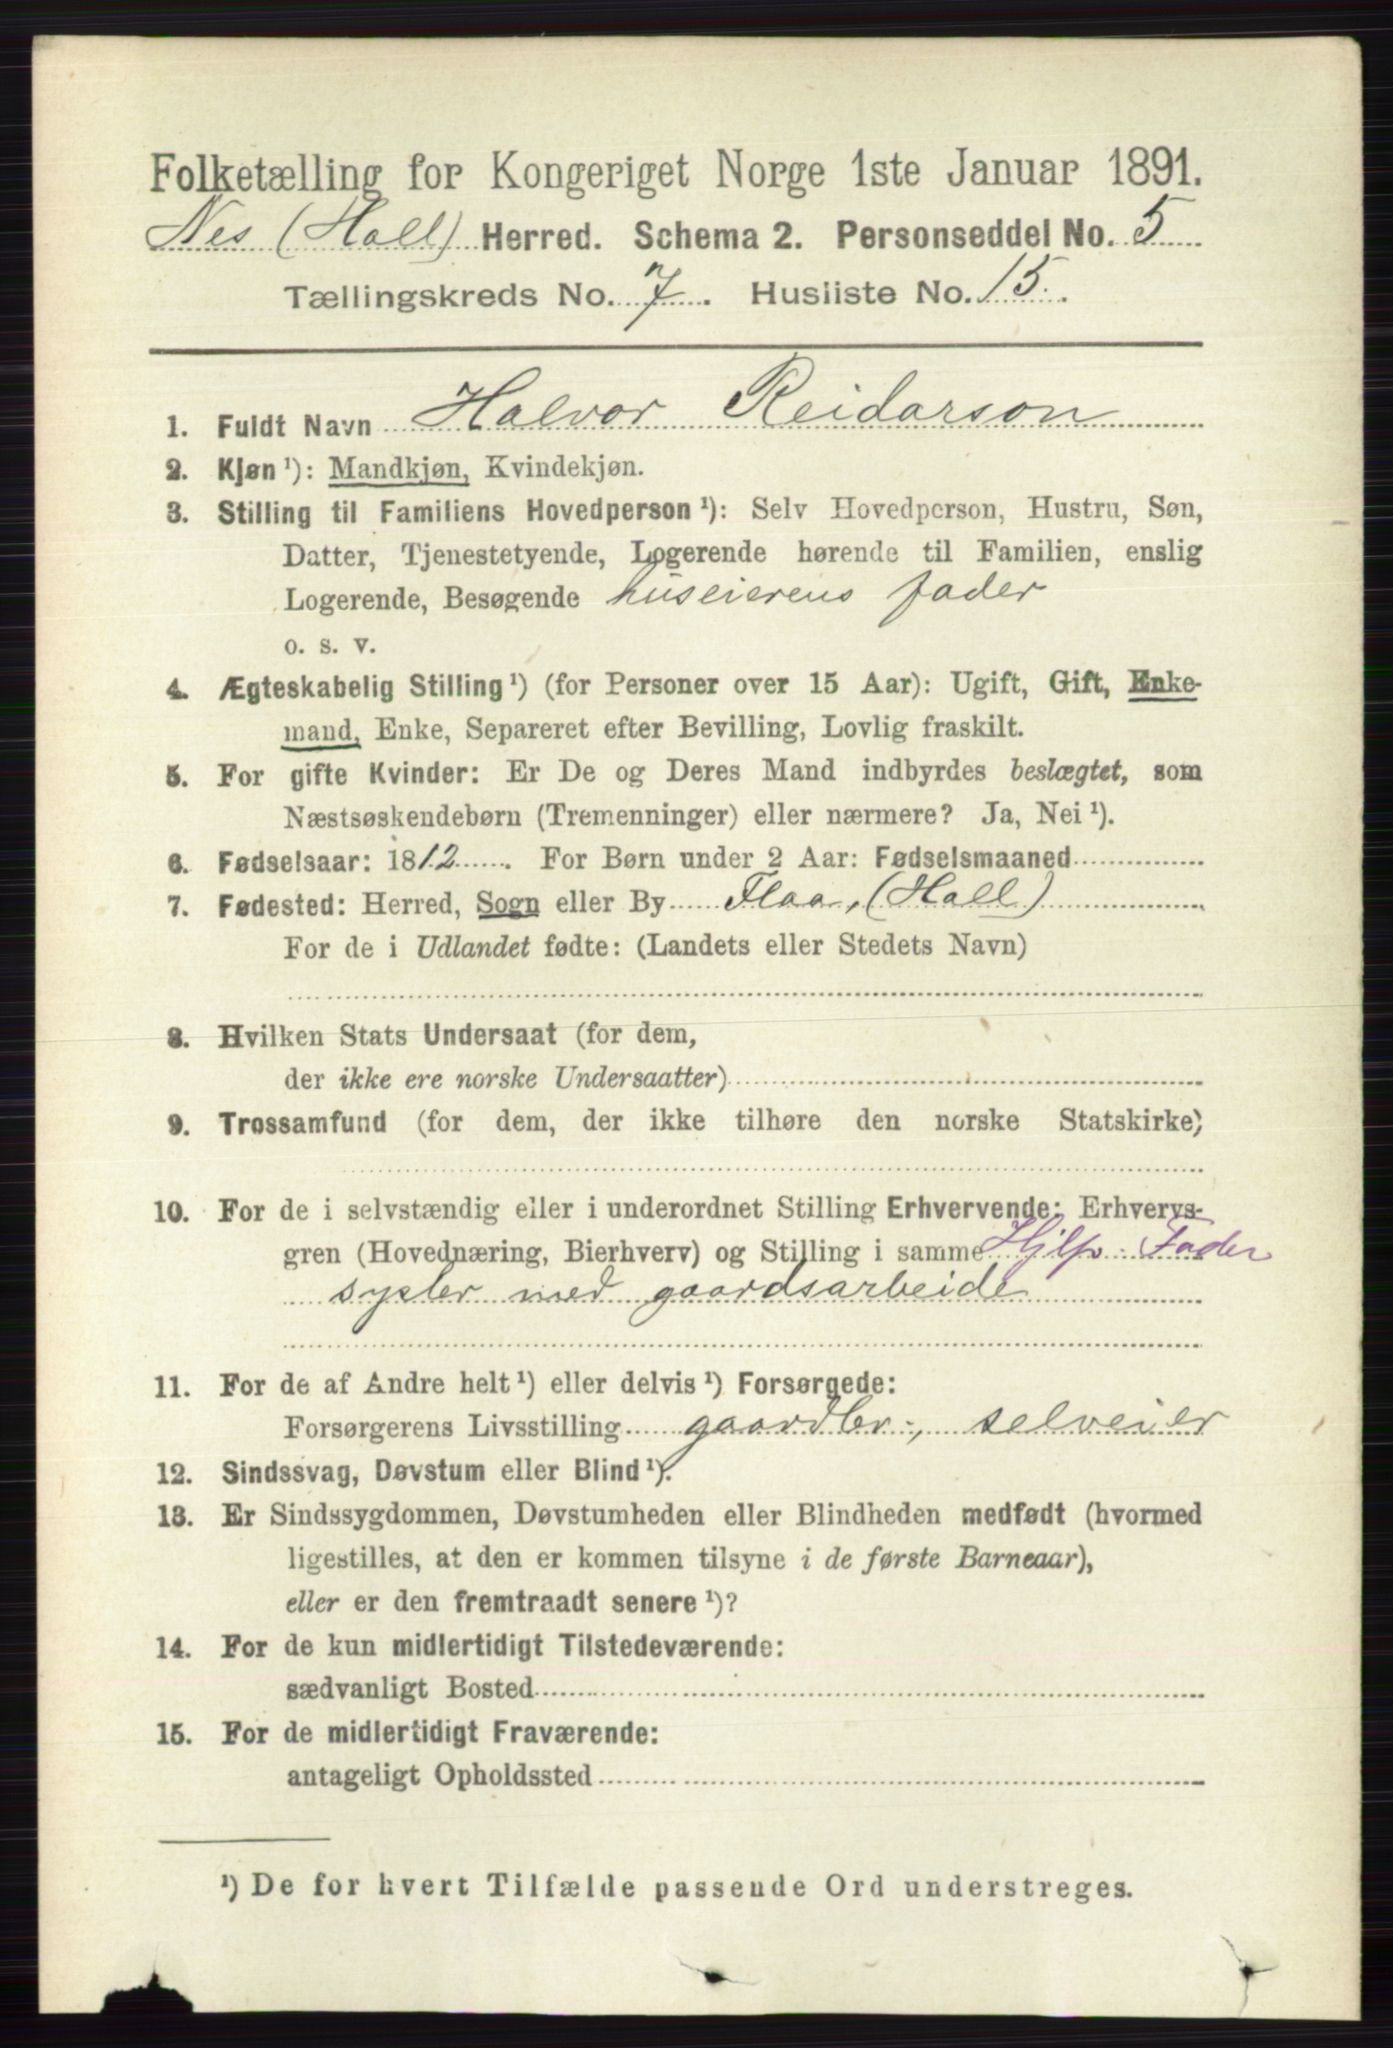 Folketælling for Kongeriget Norge 1ste Januar 1891.
Nes (Hall) Herred. Schema 2. Personseddel No. 5
Tællingskreds No. 7. Husliste No. 15.
1. Fuldt Navn Halvor Reidarson
2. Kjøn ¹): Mandkjøn, Kvindekjøn.
3. Stilling til Familiens Hovedperson ¹): Selv Hovedperson, Hustru, Søn,
Datter, Tjenestetyende, Logerende hørende til Familien, enslig
Logerende, Besøgende huseierens fader
o. s. v.
4. Ægteskabelig Stilling ¹) (for Personer over 15 Aar): Ugift, Gift, Enke-
mand, Enke, Separeret efter Bevilling, Lovlig fraskilt.
5. For gifte Kvinder: Er De og Deres Mand indbyrdes beslægtet, som
Næstsøskendebørn (Tremenninger) eller nærmere? Ja, Nei ¹).
6. Fødselsaar: 1812. For Børn under 2 Aar: Fødselsmaaned
7. Fødested: Herred, Sogn eller By Flaa, (Hall)
For de i Udlandet fødte: (Landets eller Stedets Navn)
8. Hvilken Stats Undersaat (for dem,
der ikke ere norske Undersaatter)
9. Trossamfund (for dem, der ikke tilhøre den norske Statskirke)
10. For de i selvstændig eller i underordnet Stilling Erhvervende: Erhvervs-
gren (Hovednæring, Bierhverv) og Stilling i samme Hjlp. Fader
sysler med gaardsarbeide
11. For de af Andre helt ¹) eller delvis ¹) Forsørgede:
Forsørgerens Livsstilling gaardbr., selveier
12. Sindssvag, Døvstum eller Blind ¹).
13. Er Sindssygdommen, Døvstumheden eller Blindheden medfødt (hvormed
ligestilles, at den er kommen tilsyne i de første Barneaar),
eller er den fremtraadt senere ¹)?
14. For de kun midlertidigt Tilstedeværende:
sædvanligt Bosted
15. For de midlertidigt Fraværende:
antageligt Opholdssted
¹) De for hvert Tilfælde passende Ord understreges.